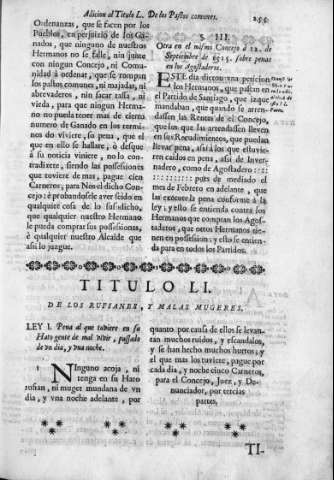 Adicion al Titulo L. De los Pastos comunes.
255
Ordenanzas, que se facen por los
Pueblos, en perjuicio de los Ga-
nados, que ninguno de nuestros
Hermanos no se falle, nin junte
con ningun Concejo, ni Comu-
nidad à ordenar, que se rompan
los pastos comunes, ni majadas, ni
abrevaderos, nin facer tassa, ni
vieda, para que ningun Herma-
no no pueda tener mas de cierto
numero de Ganado en los termi-
nos do vivere, so pena, que el
que en ello se fallare, ò desque
à su noticia viniere, no lo con-
tradixere, siendo las possessiones
que toviere de mas, pague cien
Carneros, para Nòs el dicho Conce-
jo: è probandosele aver seido en
qualquier cosa de lo susodicho,
que qualquier nuestro Hermano
le pueda comprar sus possessiones,
è qualquier nuestro Alcalde que
assi lo juzgue.
§. III.
Otra en el mismo Concejo à 12. de
Septiembre de 1515. sobre penas
en los Agostaderos.
ESTE dia dieron una peticion
los Hermanos, que pastan en
el Partido de Santiago, que
mandaban, que quando se arren-
dassen las Rentas de el Concejo,
que los que las arrendassen lleven
en sus Recudimientos, que puedan
llevar pena, assi à los que estuvie-
ren caidos en pena, assi de Inver-
nadero, como de Agostadero ::
:::::::::: pues de mediado el
mes de Febrero en adelante, que
las execute la pena conforme à la
ley; y ello se entienda contra los
Hermanos que compran los Agos-
taderos, que otros Hermanos tie-
nen en possession; y ello se entien-
da para en todos los Partidos.
TITULO LI.
DE LOS RUFIANES, Y MALAS MUGERES.
LEY I. Pena al que tuviere en su
Hato gente de mal vivir, passado
de un dia, y una noche.
1 Ninguno acoja, ni
tenga en su Hato
rofian, ni muger mundana de un
dia, y una noche adelante, por
quanto por causa de ellos se levan-
tan muchos ruidos, y escandalos,
y se han hecho muchos hurtos; y
al que mas los tuviere, pague por
cada dia, y noche cinco Carneros,
para el Concejo, Juez, y De-
nunciador, por tercias
partes.
TI-